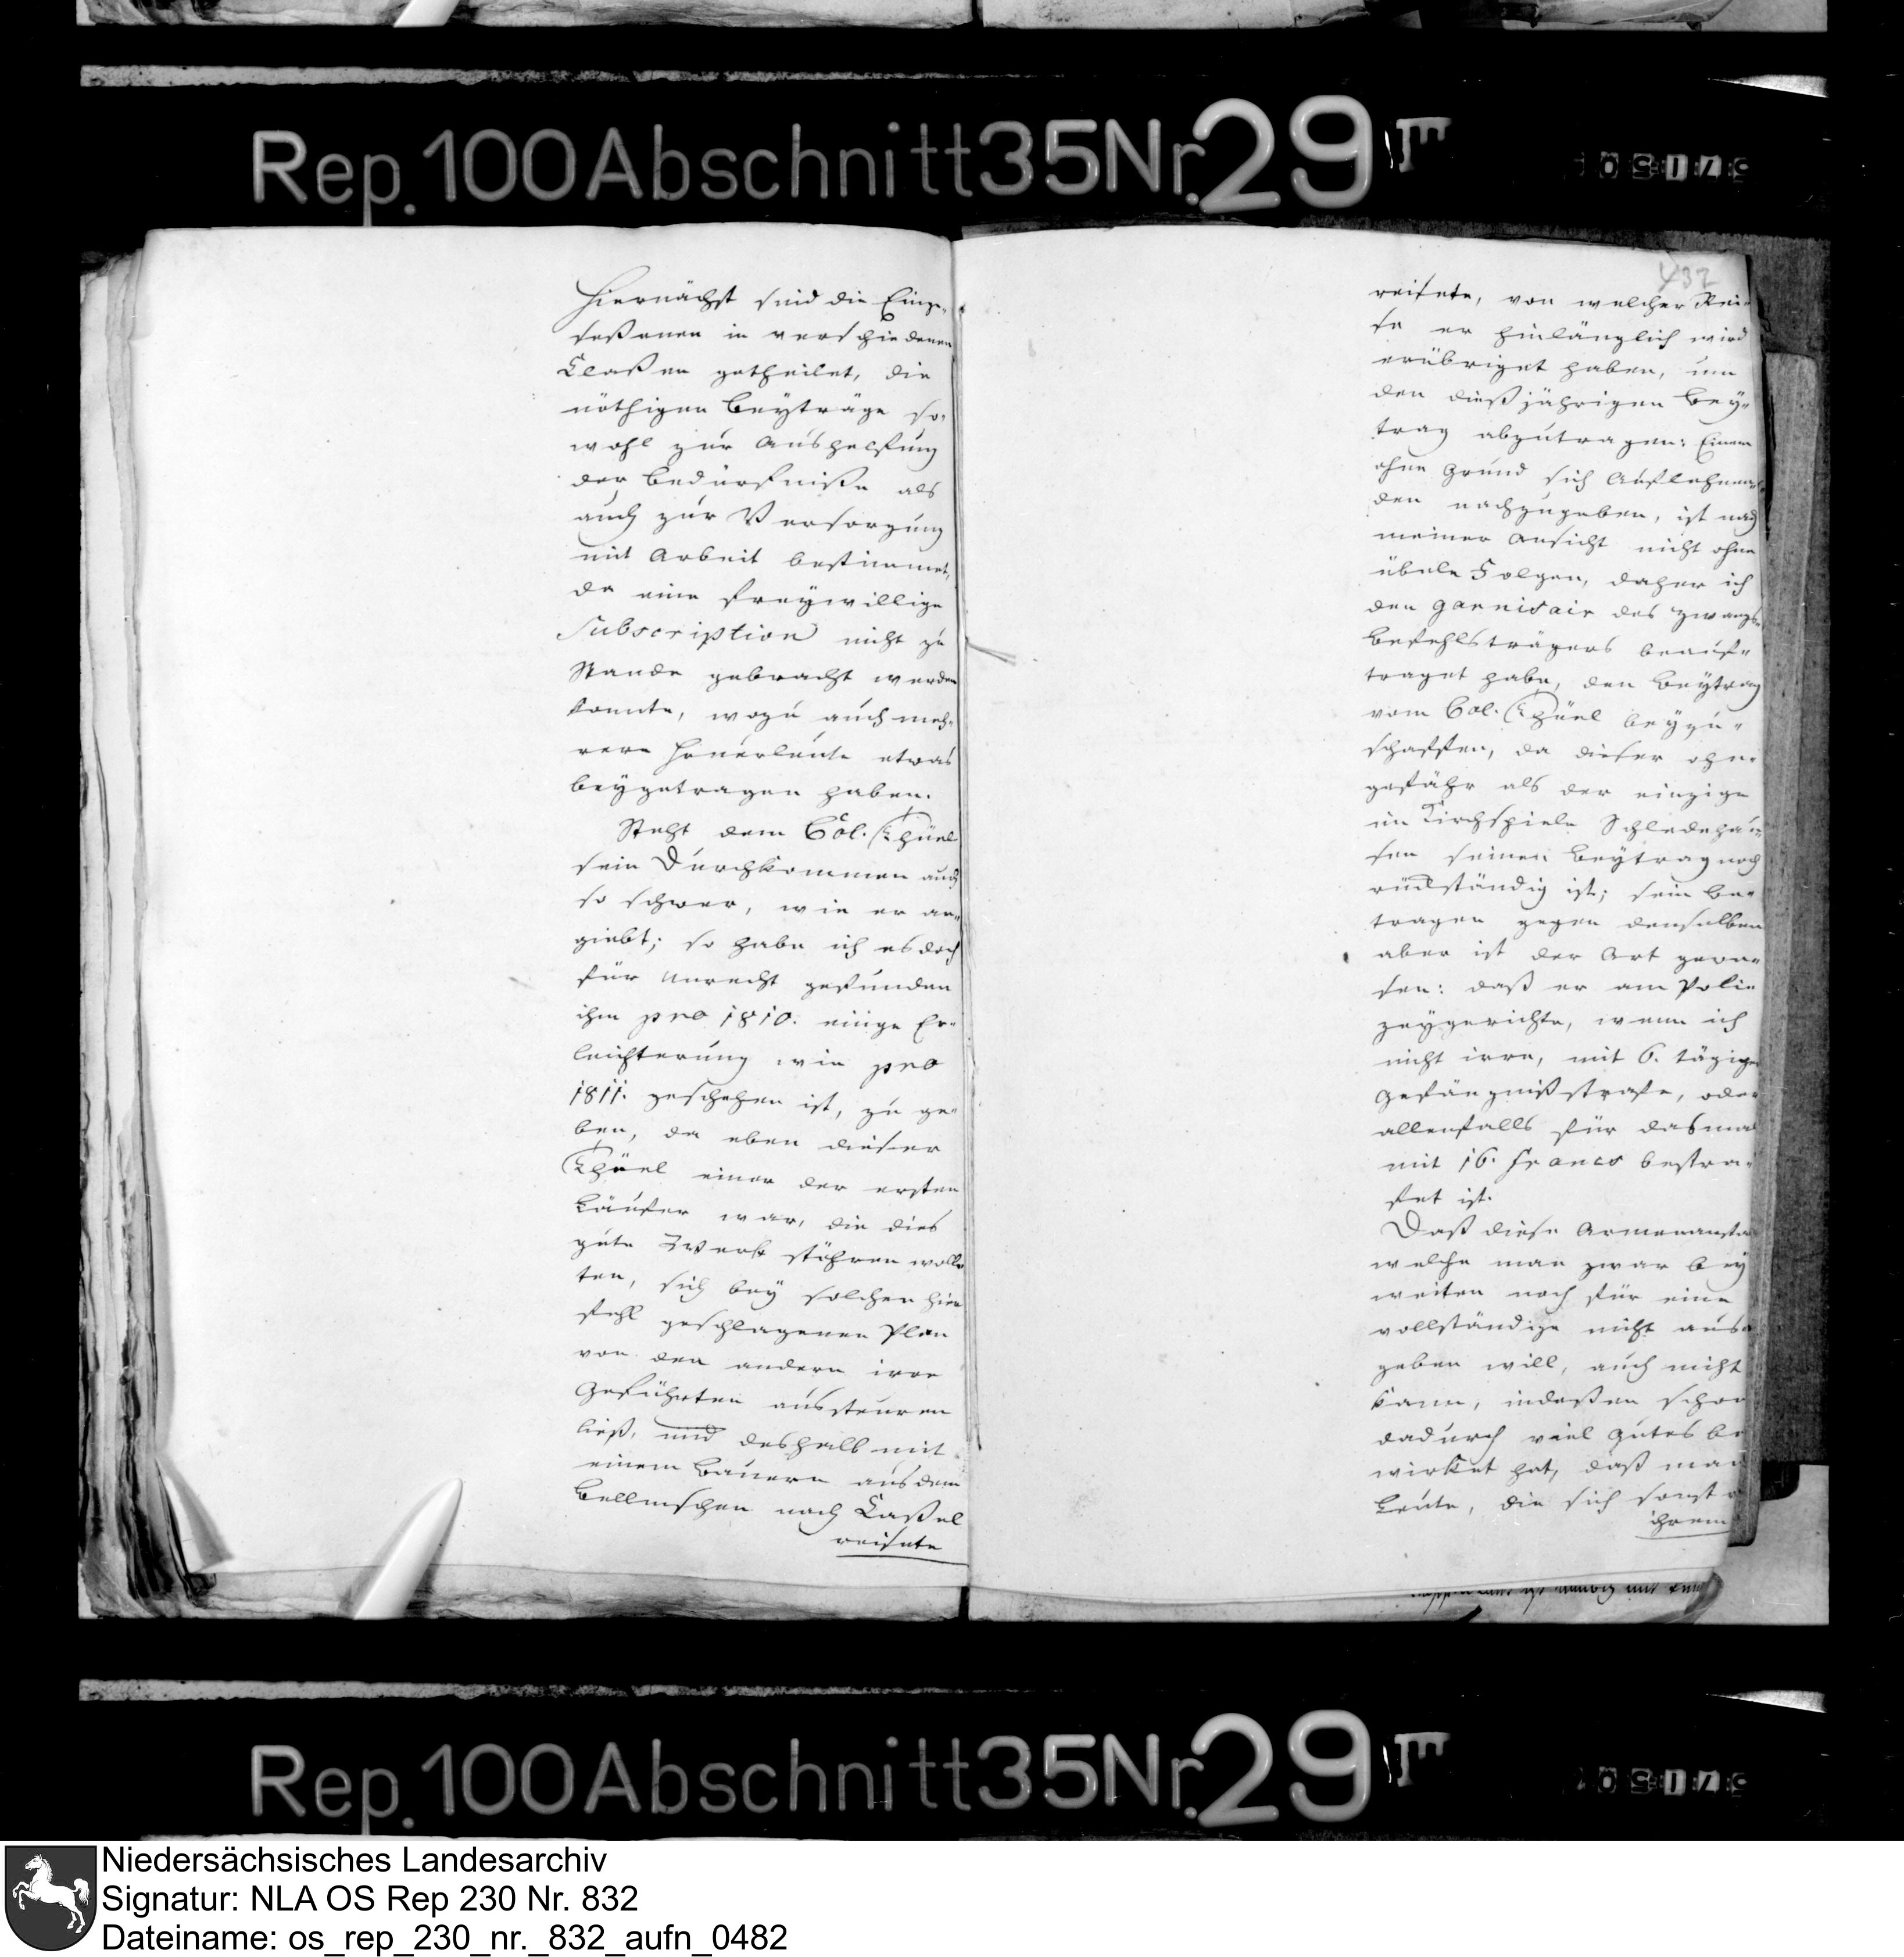 Rep. 100 Abschnitt 35 Nr. 29 I
Hiernächst sind die Einge-
seßenen in verschiedenen
Claßen getheilet, die
nöthigen Beyträge so-
wohl zur Aushelfung
der Bedürfniße als
auch zur Versorgung
mit Arbeit bestimmet,
da eine freywillige
Subscription nicht zu
Stande gebracht werden
konnte, wozu auch meh-
rere Heuerleute etwas
beygetragen haben.
Steht dem Col.
sein Durchkommen auch
so schwer, wie er an-
giebt; so habe ich es doch
für Unrecht gefunden
ihm pro 1810. einige Er-
leichterung wie pro
1811. geschehen ist, zu ge-
ben, da eben dieser
einer der ersten
Läufer war, die dies
gute Werk stöhren woll-
ten, sich bey solchen hier
fehl geschlagenen Plan
von den andern irre
Geführten aussteuren
ließ, und deshalb mit
einem Bauern aus dem
Bellmschen nach Caßel
reisete
432
reisete, von welcher Rei-
se er hinlänglich wird
erübriget haben, um
den dießjährigen Bey-
trag abzutragen: Einem
ohne Grund sich Auflehnen-
den nachzugeben, ist nach
meiner Ansicht nicht ohne
übele Folgen, daher ich
den Garnisair des Zwangs-
befehlsträgers beauf-
traget habe, den Beytrag
vom Col. beyzu-
schaffen, da dieser ohn-
gefähr als der einzige
im Kirchspiele Schledehau-
sen seinen Beytrag noch
rückständig ist; sein Be-
tragen gegen denselben
aber ist der Art gewe-
sen: daß er am Poli-
zeygerichte, wenn ich
nicht irre, mit 6. tägiger
Gefängnißstrafe, oder
allenfalls für dasmal
mit 16. Francs bestra-
fet ist.
Daß diese Armenanstal
welche man zwar bey
weiten noch für eine
vollständige nicht aus-
geben will, auch nicht
kann, indeßen schon
dadurch viel Gutes be
wirket hat, daß man
Leute, die sich sonst
ihrem
Rep. 100 Abschnitt 35 Nr. 29 I
Niedersächsisches Landesarchiv
Signatur: NLA OS Rep 230 Nr. 832
Dateiname: os_rep_230_nr._832_aufn_0482